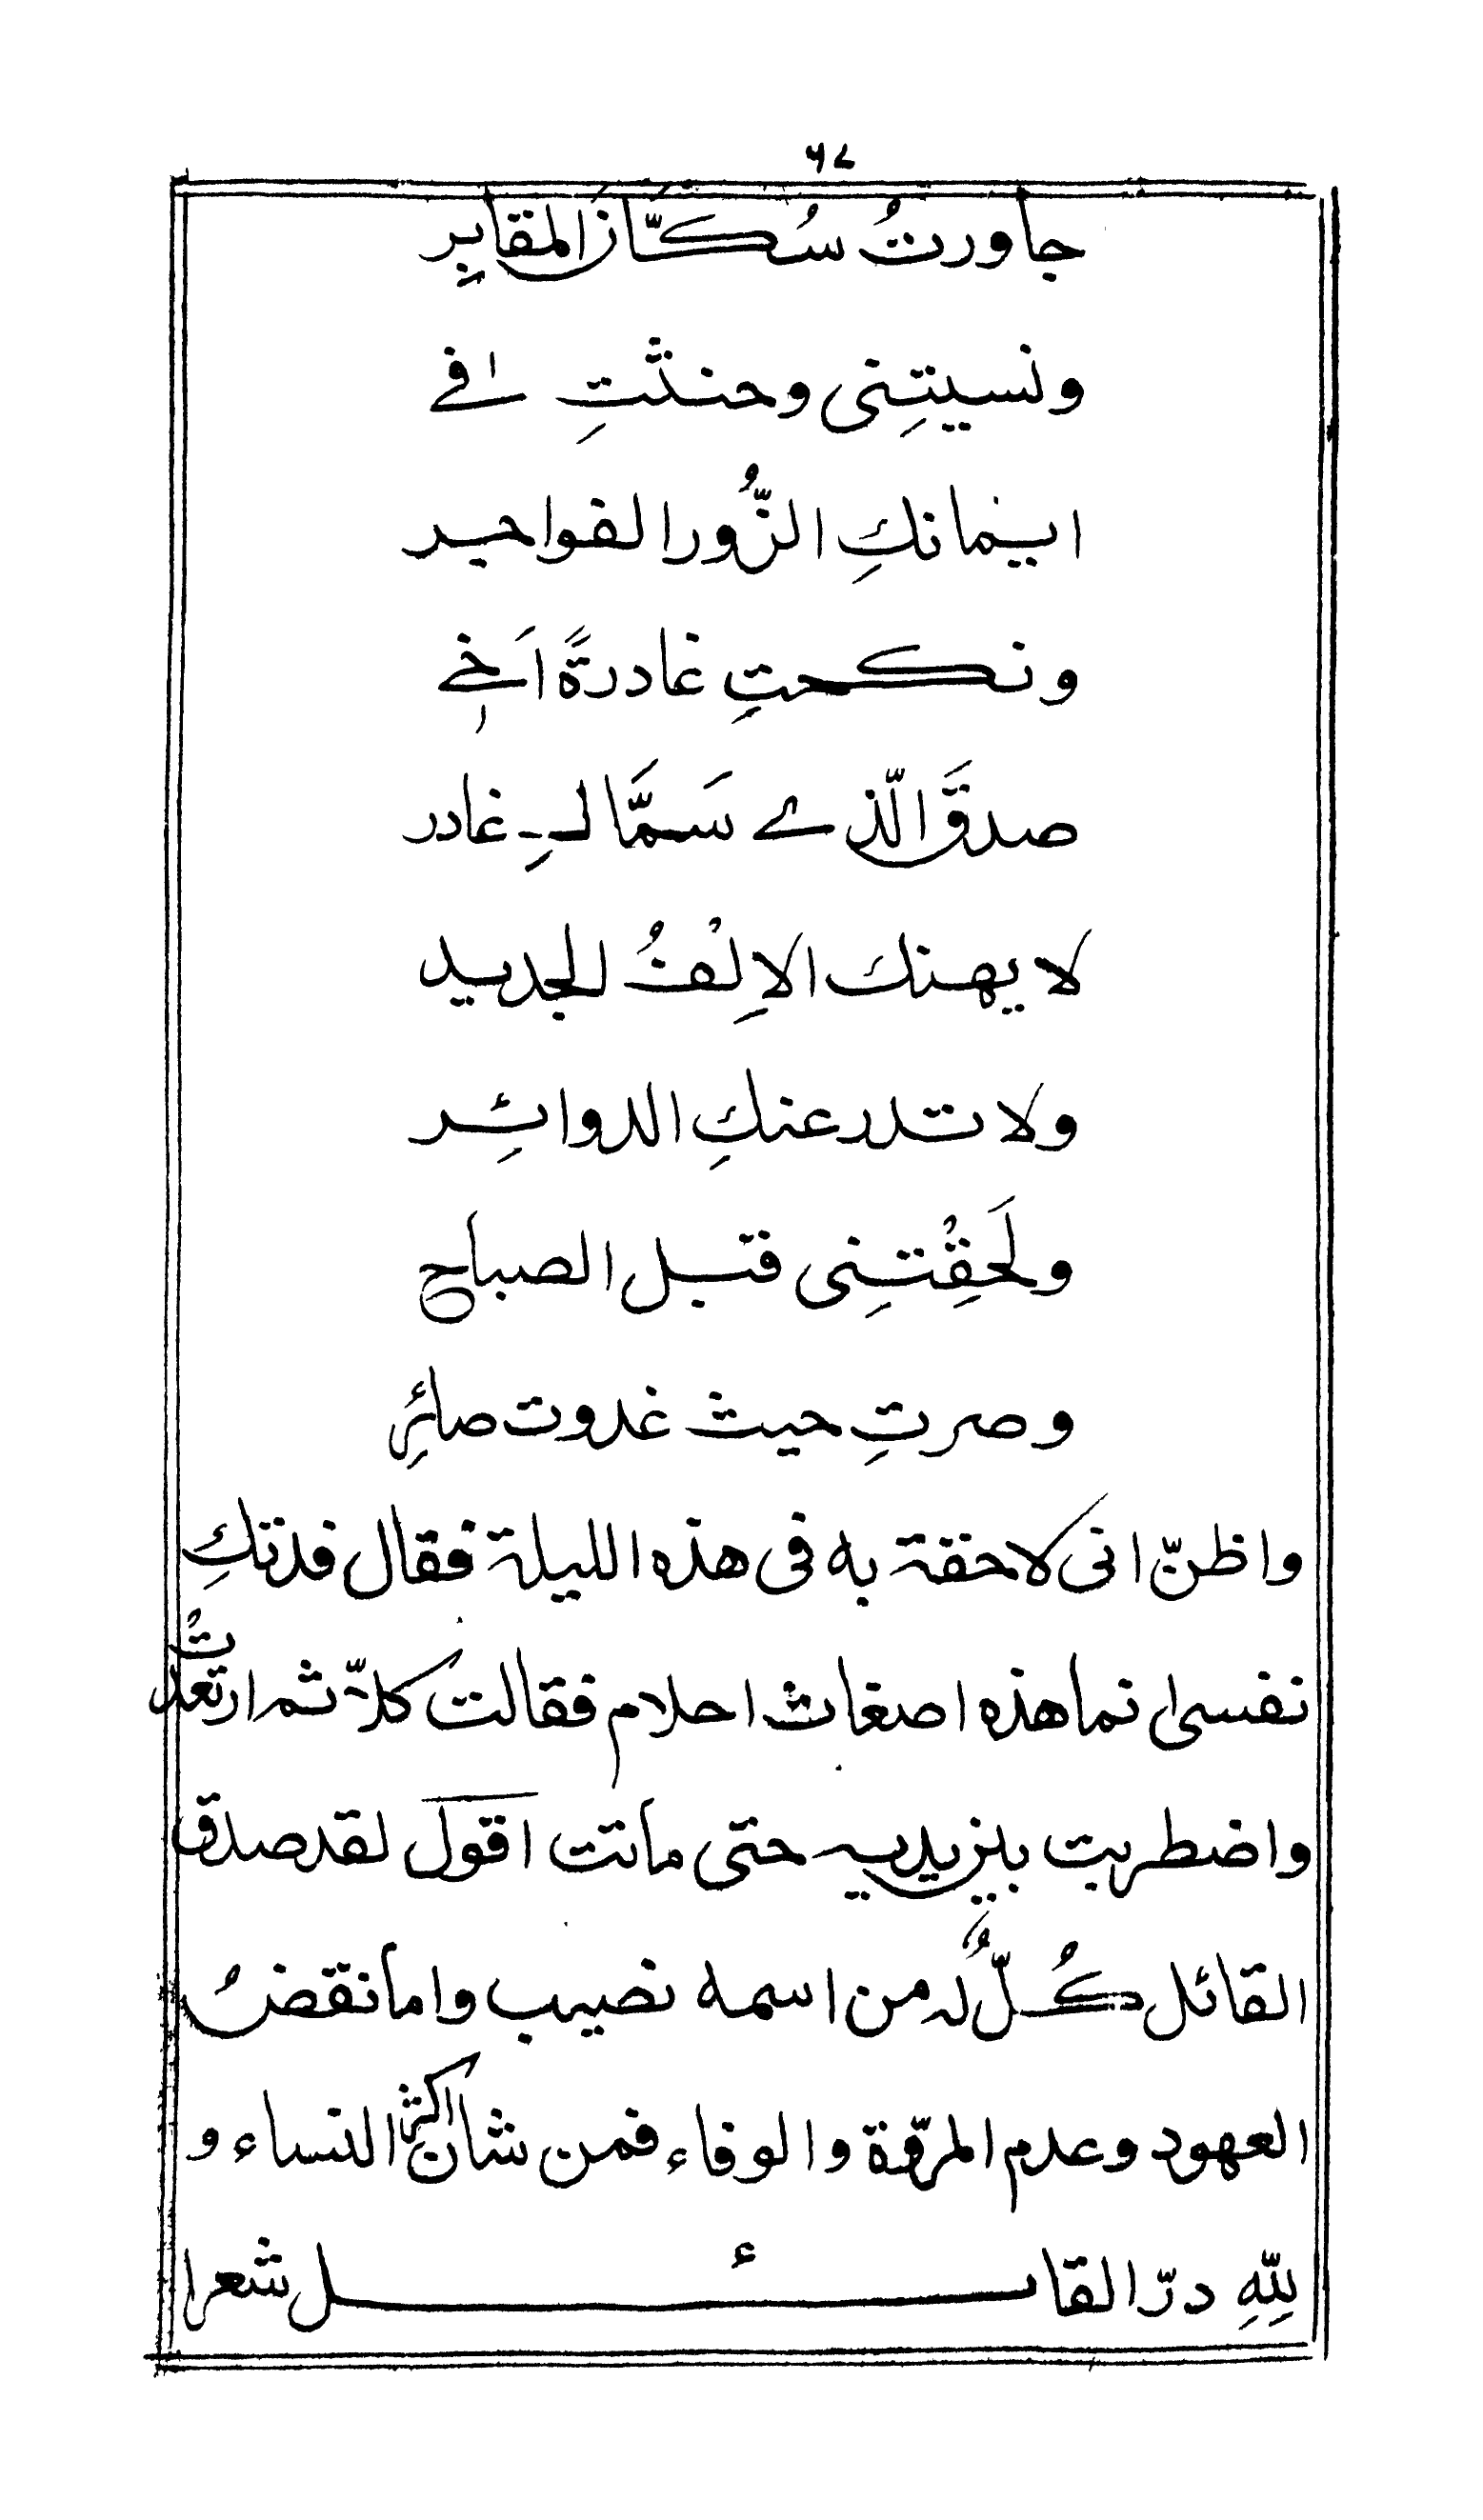 ٦٧
جاورتُ سُكّانَ المقابِر
ونسيتِنى وحنثتِ فے
ايمانكِ الزُّور الفواجر
ونكحتِ غادرةً اَخے
صدقَ الّذے سَمَّا لـِ غادر
لا يهنك الاِلْفُ الجديد
ولا تدر عنكِ الدوائِر
ولَحِقْتِنِى قبل الصباح
وصرتِ حيث غدوت صائِر
واظنّ انى لاحقة به فى هذه الليلة فقال فدتكِ
نفسى انما هذه اضغاث احلام فقالت كلّا ثم ارتعدتُ
واضطربت بين يديه حتى ماتت اقول لقد صدق
القائل كُلٌّ له من اسمه نصيب واما نقضُ
العهود وعدم المرقّة والوفاء فمن شأن اكثر النساء و
لِلّهِ درّ القائل شعرا